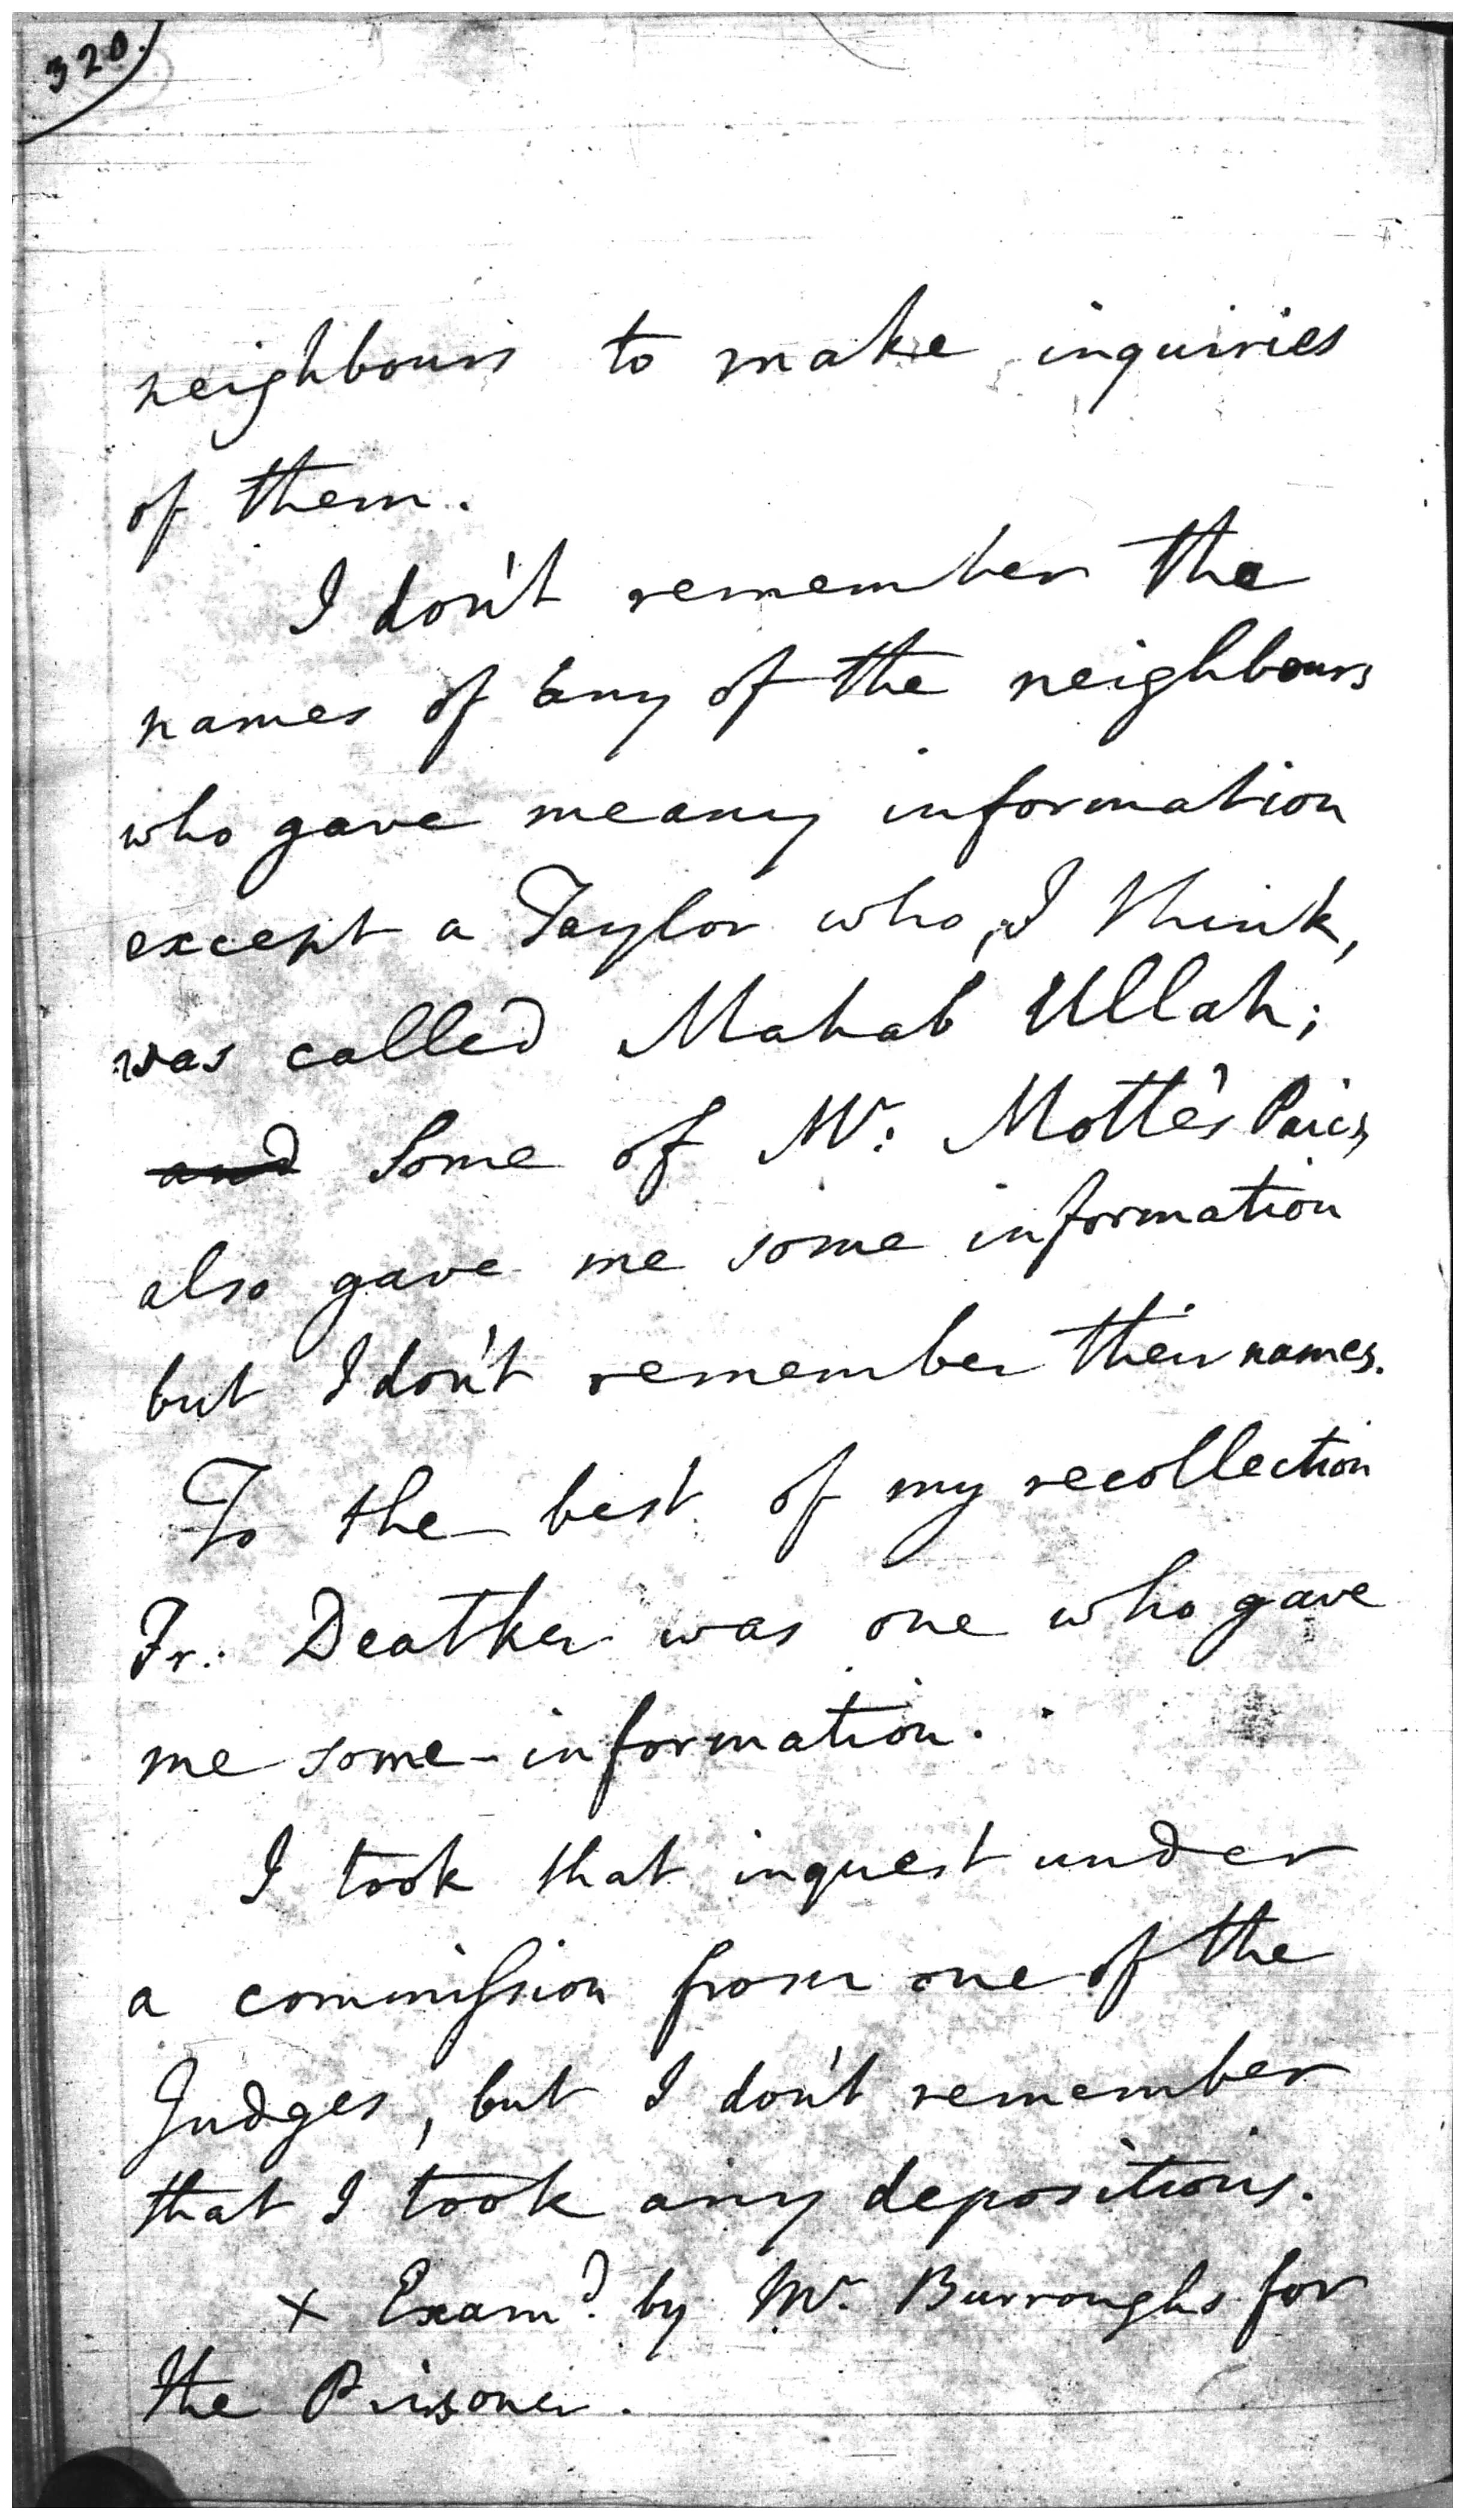 320.
neighbours to make inquiries
of them.
I don't remember the
names of any of the neighbours
who gave me any information
except a Taylor who, I think,
was called Mahab Ullah;
and Some of Mr: Motte's
also gave me some information
but I don't remember their names.
To the best of my recollection
Fr. Deatker was one who gave
me some information.
I took that inquest under
a commission from one of the
Judges, but I don't remember
that I took any depositions.
x Examd. by Mr. Burroughs for
the Prisoner.